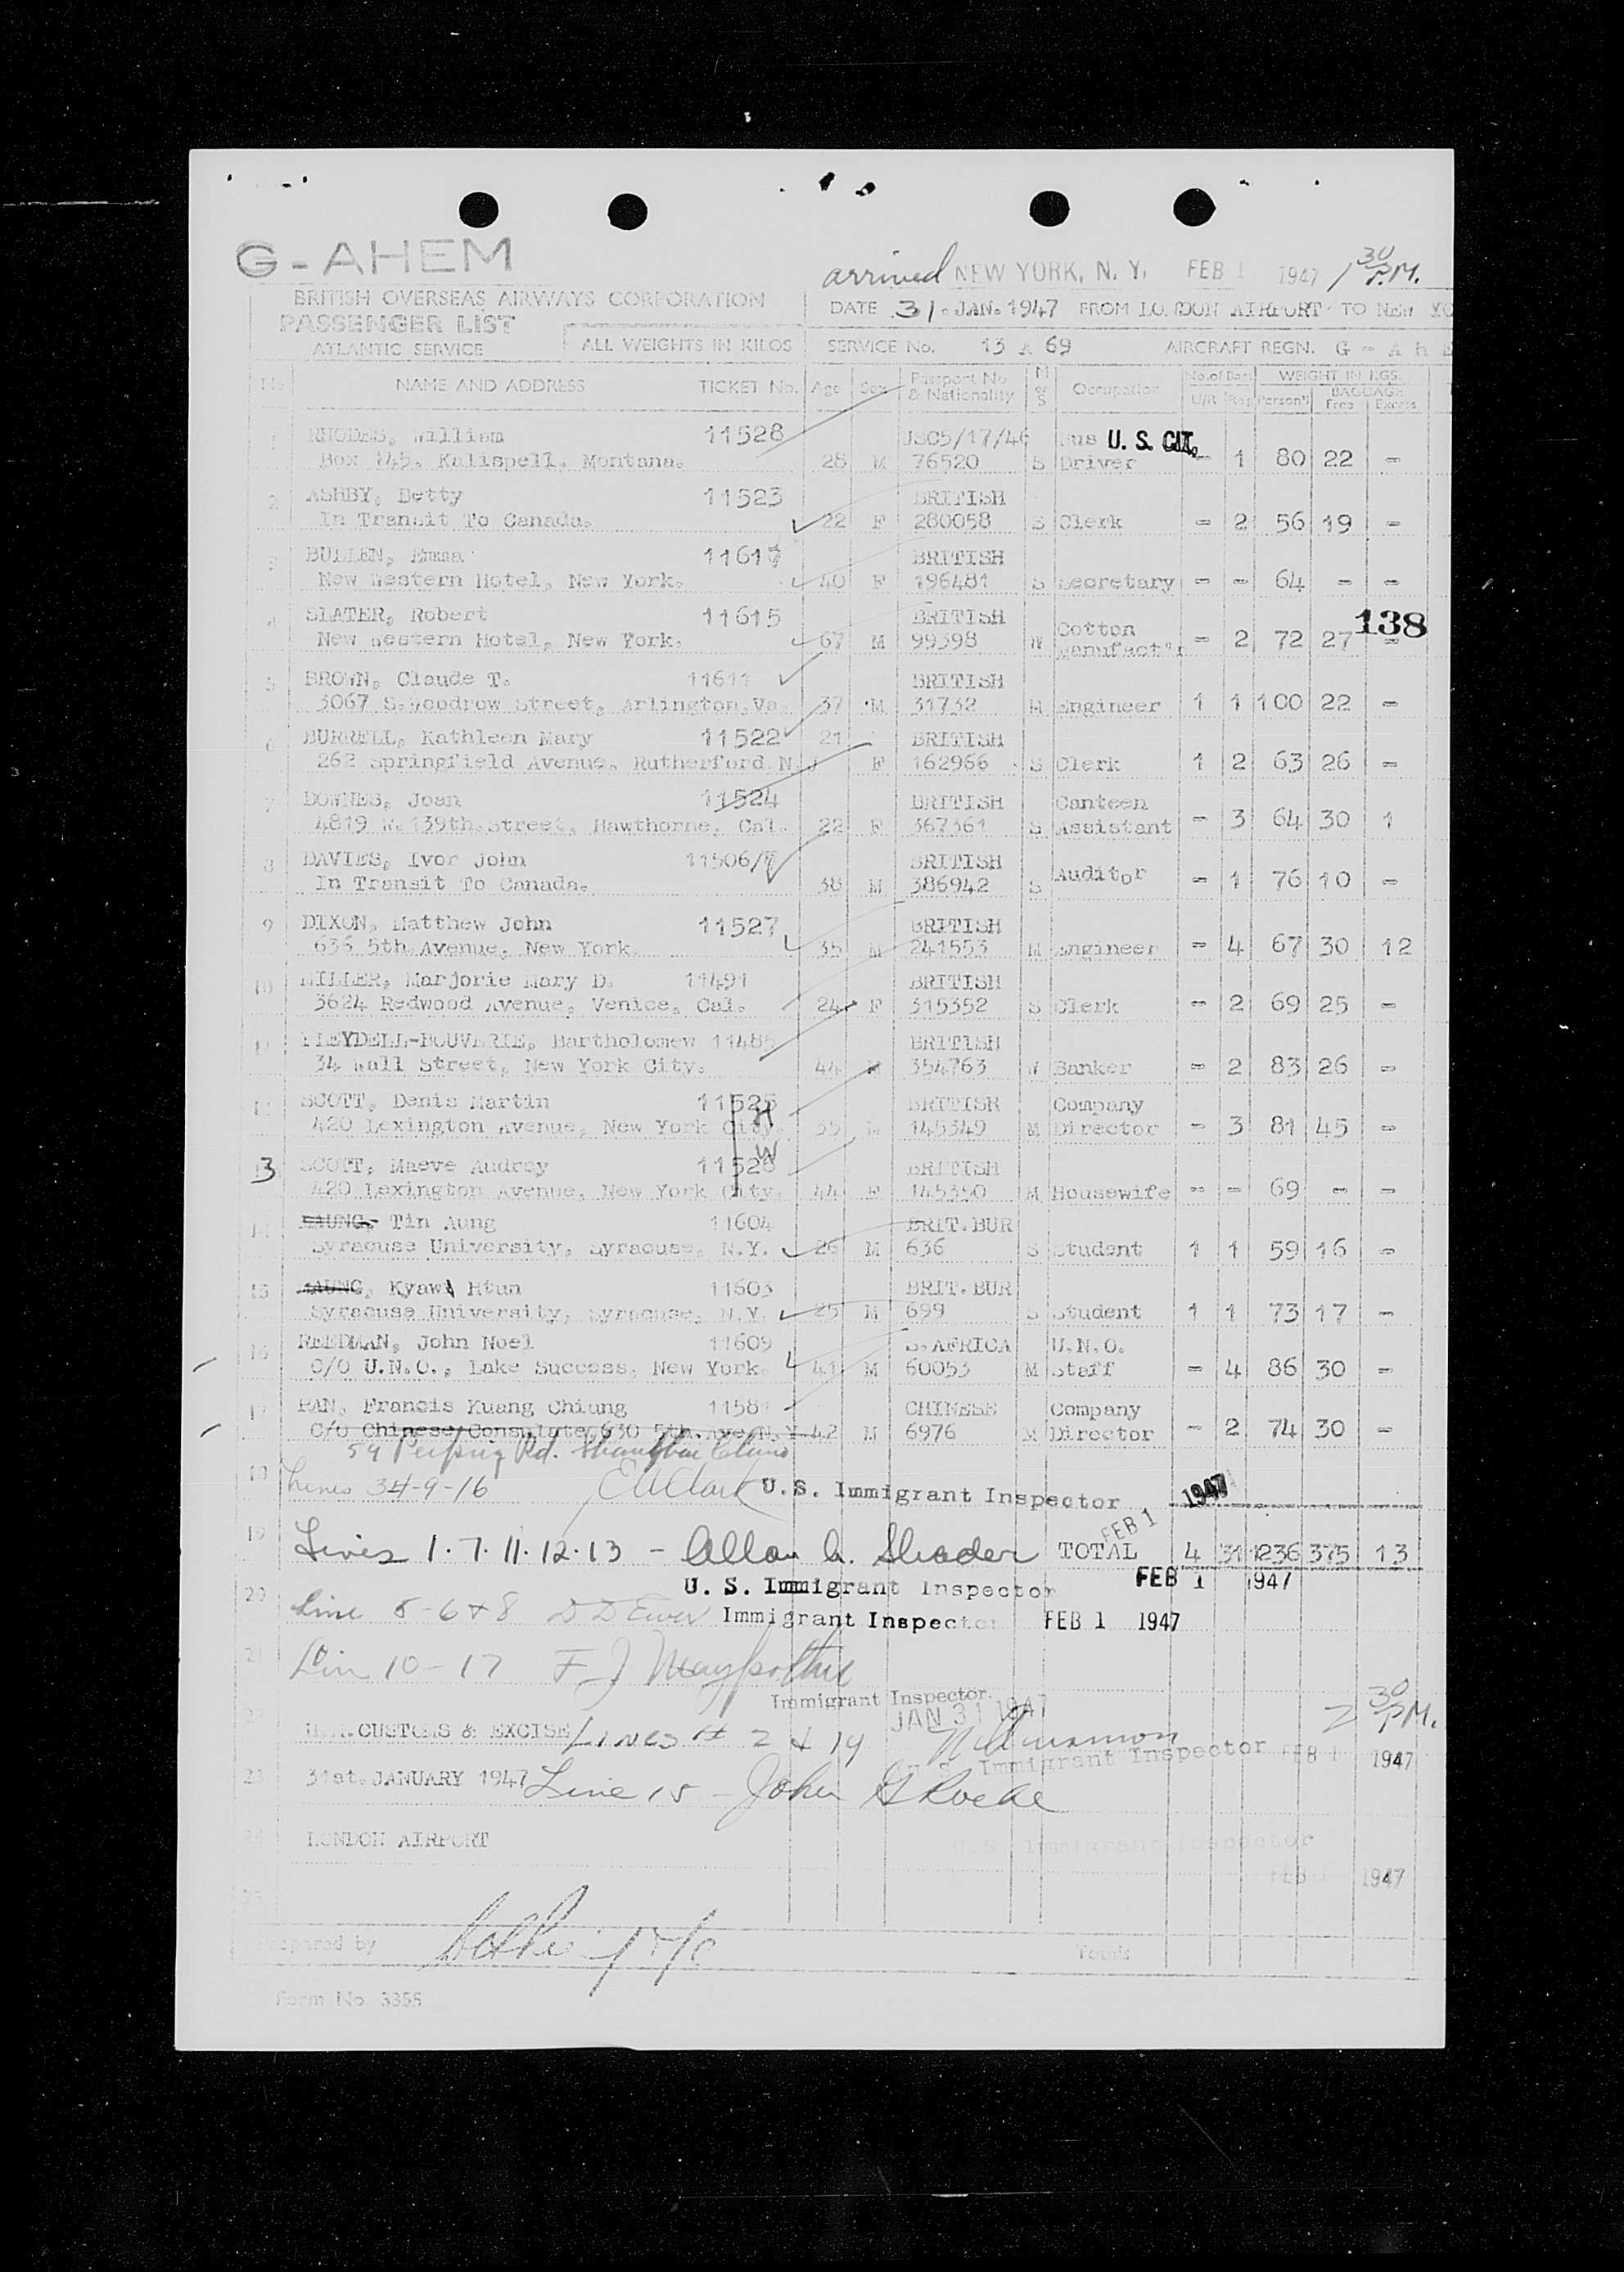 G-AHEM
arrived NEW YORK, N. Y. FEB 1 1947 1 30 P.M.
BRITISH OVERSEAS AIRWAYS CORPORATION
PASSENGER LIST
ATLANTIC SERVICE
ALL WEIGHTS IN KILOS
DATE 31. JAN. 1947 FROM LONDON AIRPORT TO NEW YO
SERVICE No. 13 A 69 AIRCRAFT REGN. G - A H E
No. NAME AND ADDRESS TICKET No. Age Sex Passport No & Nationality M or S Occupation No. of Bags U/R Reg WEIGHT IN KGS. Person'l BAGGAGE Free Excess
1 RHODES, William 11528 JSC5/17/46 Bus U. S. CIT.
Box 145, Kalispell, Montana. 28 M 76520 S Driver - 1 80 22 -
2 ASHBY, Betty 11523 BRITISH
In Transit To Canada. 22 F 280058 S Clerk - 2 56 19 -
3 BULLEN, Emma 11617 BRITISH
New Western Hotel, New York. 40 F 196481 S Secretary - - 64 - -
4 SLATER, Robert 11615 BRITISH Cotton 138
New Western Hotel, New York. 67 M 99398 W Manufact'r - 2 72 27 -
5 BROWN, Claude T. 11611 BRITISH
3067 S. Woodrow Street, Arlington, Va. 37 M 31732 M Engineer 1 1 100 22 -
6 BURRELL, Kathleen Mary 11522 21 BRITISH
262 Springfield Avenue, Rutherford N.J F 162966 S Clerk 1 2 63 26 -
7 DOWNES, Joan 11524 BRITISH Canteen
4819 W. 139th. Street, Hawthorne, Cal. 22 F 367361 S Assistant - 3 64 30 1
8 DAVIES, Ivor John 11506/7 BRITISH Auditor
In Transit To Canada. 38 M 386942 S - 1 76 10 -
9 DIXON, Matthew John 11527 BRITISH
636 5th. Avenue, New York. 35 M 241553 M Engineer - 4 67 30 12
10 MILLER, Marjorie Mary D. 11491 BRITISH
3624 Redwood Avenue, Venice, Cal. 24 F 315352 S Clerk - 2 69 25 -
11 PLEYDELL-BOUVERIE, Bartholomew 11485 BRITISH
34 Wall Street, New York City. 44 M 354763 W Banker - 2 83 26 -
12 SCOTT, Denis Martin 11525 H BRITISH Company
420 Lexington Avenue, New York City. 35 M 145349 M Director - 3 81 45 -
13 SCOTT, Maeve Audrey 11526 W BRITISH
420 Lexington Avenue, New York City. 44 F 145350 M Housewife - - 69 - -
14 MAUNG, Tin Aung 11604 BRIT.BUR
Syracuse University, Syracuse, N.Y. 26 M 636 S Student 1 1 59 16 -
15 MAUNG, Kyaw Htun 11603 BRIT.BUR
Syracuse University, Syracuse, N.Y. 25 M 699 S Student 1 1 73 17 -
16 REEDMAN, John Noel 11609 S.AFRICA U.N.O.
C/O U.N.O., Lake Success, New York. 41 M 60053 M Staff - 4 86 30 -
17 PAN, Francis Kuang Chiung 11581 CHINESE Company
C/O Chinese Consulate, 630 5th. Ave, N.Y. 42 M 6976 M Director - 2 74 30 -
59 Peiping Rd. Shanghai China
18 Lines 3-4-9-16 E A Clark U.S. Immigrant Inspector FEB 1 1947
19 Lines 1. 7. 11. 12. 13 - Allan TOTAL 4 31 1236 375 13
U. S. Immigrant Inspector FEB 1 1947
20 Line 5-6 + 8 Immigrant Inspector FEB 1 1947
21 Lin 10-17 F J
Immigrant Inspector. JAN 31 1947
22 CUSTOMS & EXCISE Lines # 2 & 14 2 30 P.M.
U. S. Immigrant Inspector FEB 1 1947
23 31st. JANUARY 1947 Line 15 - John G Roche
24 LONDON AIRPORT U. S. Immigrant Inspector
FEB 1947
25
Prepared by Totals
Form No. 3355